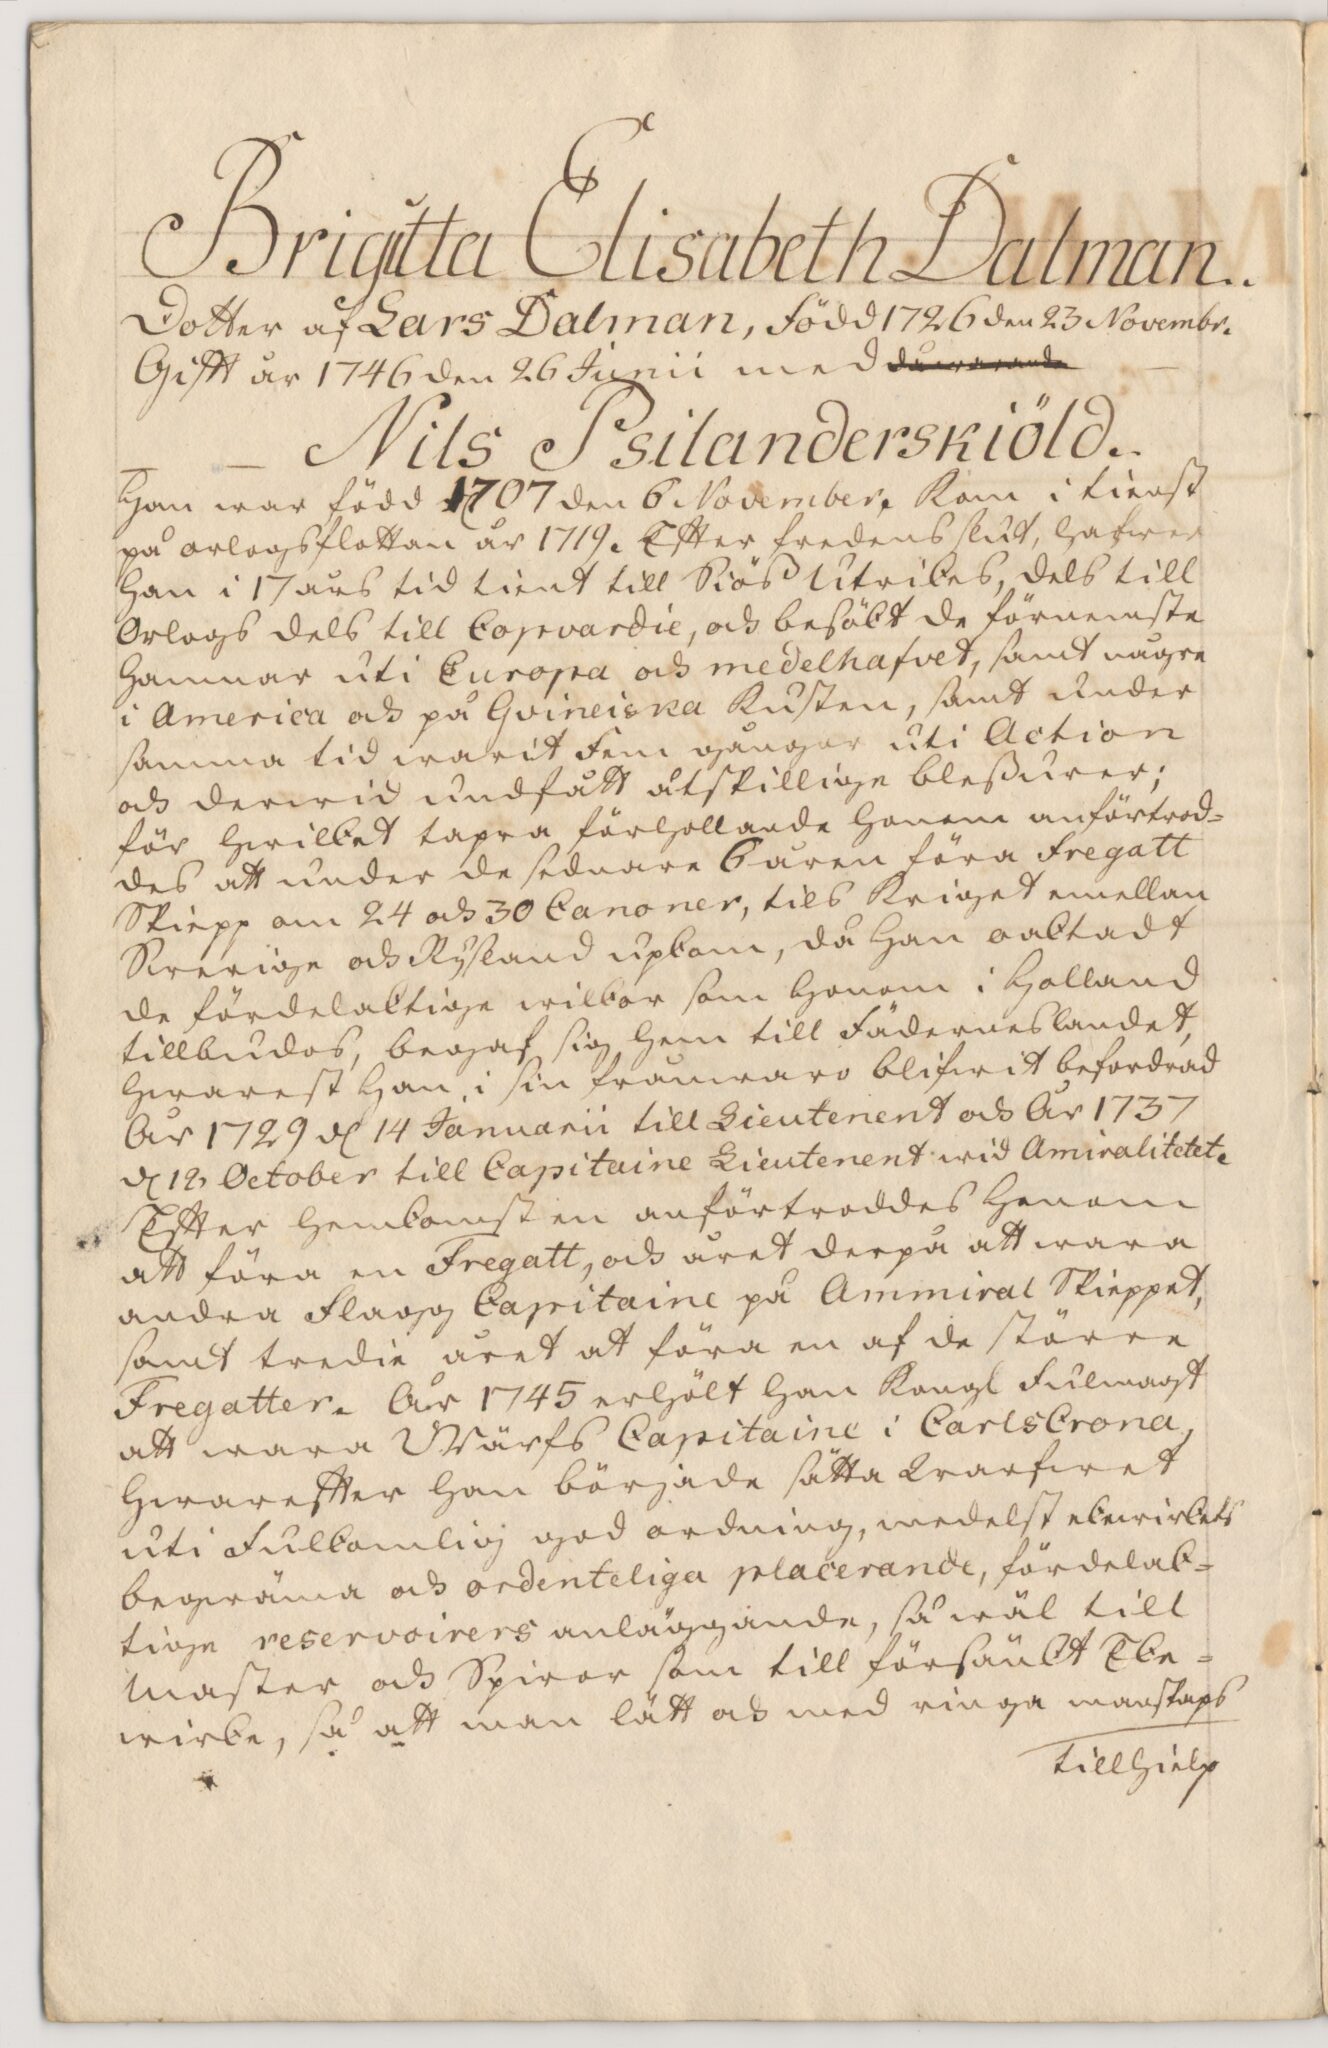 Brigitta Elisabeth Dalman..
Dotter af Lars Dalman, Född 1726 den 23 Novembr.
Gifft år 1746 den 26 Junii med
— Nils Psilanderskiöld..
Han war född 1707 den 6 November. Kom i tienst
på orlogsflottan år 1719. Efter fredens slut, hafwer
han i 17 års tid tient till Siöß Utrikes, dels till
Orlogs dels till Copvardie, och besökt de förnemste
hamnar uti Europa och medelhafvet, samt några
i America och på Gvineiska Kusten, samt under
samma tid warit Fem gånger uti Action
och derwid undfått åtskillige bleßurer;
för hwilket tapra förhollande honom anförtrod-
des att under de sednare 6 åren föra Fregatt
Skiepp om 24 och 30 Canoner, tils Kriget emellan
Swerige och Ryßland upkom, då han oaktadt
de fördelaktige wilkor som honom i Holland
tillbudos, begaf sig hem till Fäderneslandet,
hwarest han i sin frånwaro blifwit befordrad
År 1729 d. 14 Januarii till Lieutenent och År 1737
d. 12 October till Capitaine Lieutenent wid Amiralitetet.
Efter hemkomsten anförtroddes honom
att föra en Fregatt, och året derpå att wara
andra Flagg Capitaine på Ammiral Skieppet,
samt tredie året at föra en af de större
Fregatter. År 1745 erhölt han Kongl Fulmagt
att wara Wärfs Capitaine i CarlsCrona,
hwarefter han började sätta Warfwet
uti Fulkomlig god ordning, medelst ekewirkets
beqwäma och ordenteliga placerande, fördelak-
tige reservoirers anläggande, så wäl till
Master och Spiror som till försänkt Eke-
wirke, så att man lätt och med ringa manskaps
tillhielp